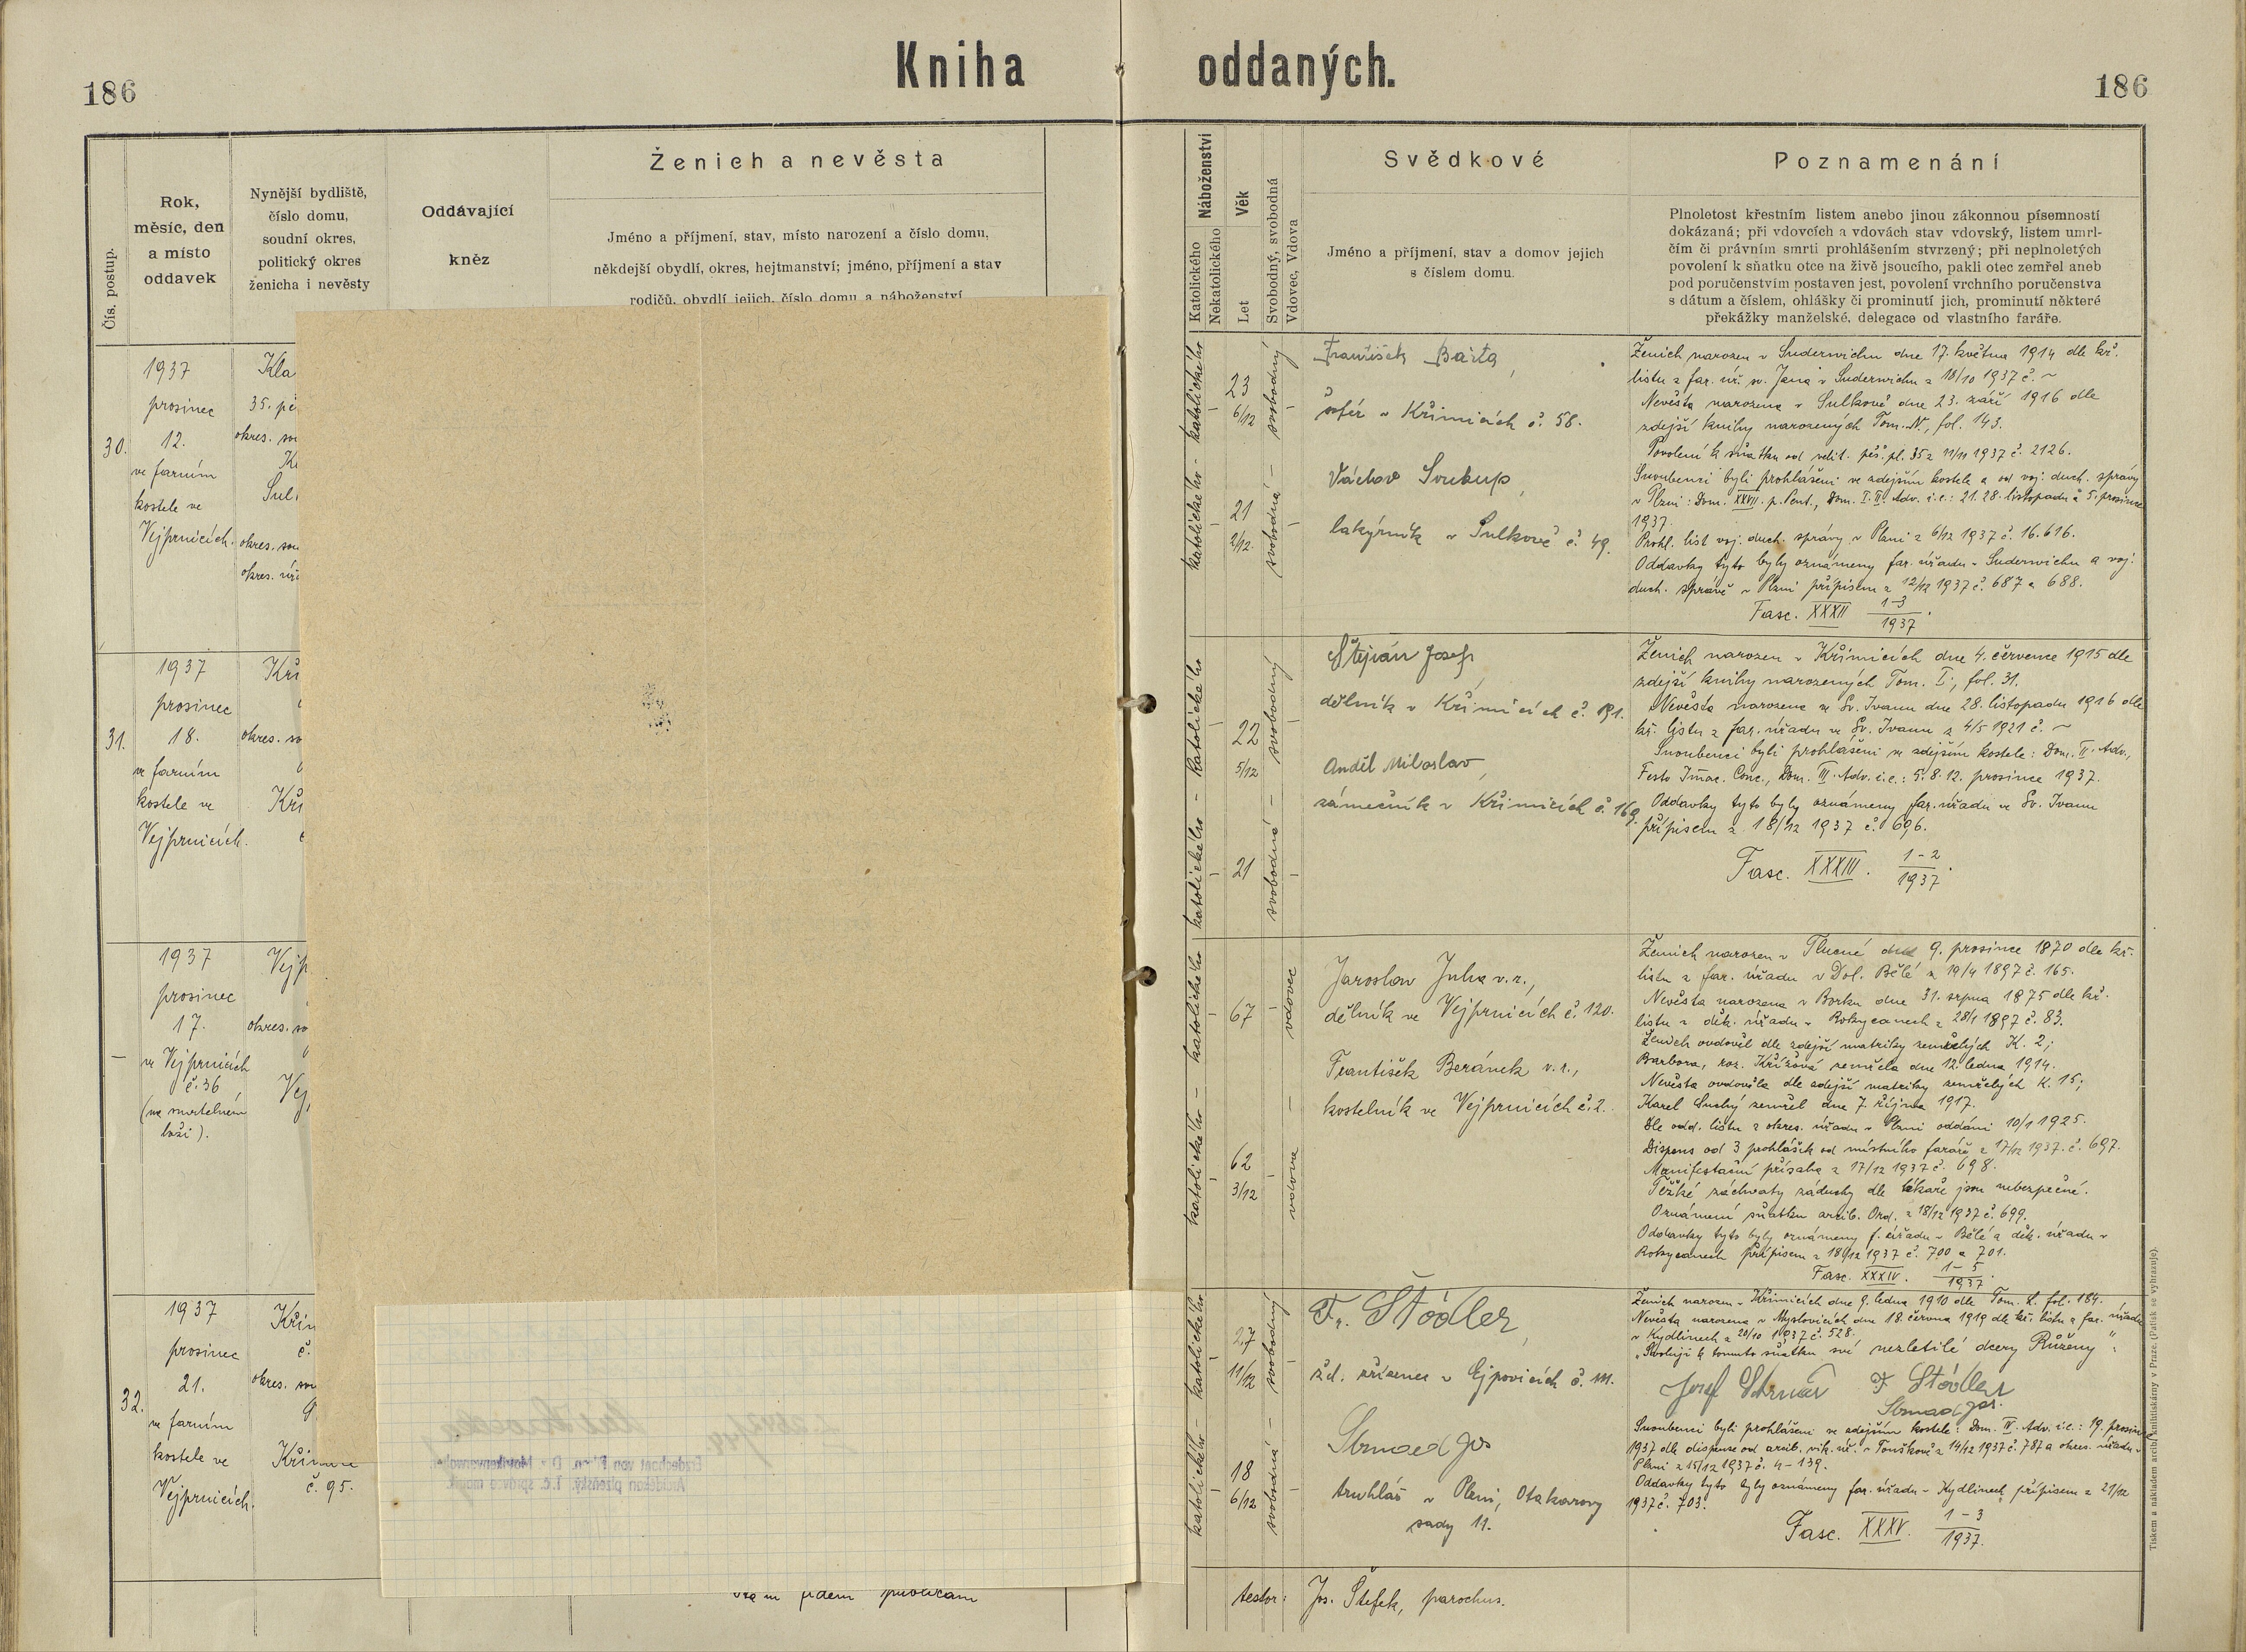 Kniha oddaných.
186
186
Čís. postup.
Rok,
měsíc, den
a místo
oddavek
Nynější bydliště,
číslo domu,
soudní okres,
politický okres
ženicha i nevěsty
Oddávající
kněz
Ženich a nevěsta
Jméno a příjmení, stav, místo narození a číslo domu,
někdejší obydlí, okres, hejtmanství; jméno, příjmení a stav
rodičů, obydlí jejich, číslo domu a náboženství
Náboženství
Katolického
Nekatolického
Věk
Let
Svobodný, svobodná
Vdovec, Vdova
Svědkové
Jméno a příjmení, stav a domov jejich
s číslem domu.
Poznamenání
Plnoletost křestním listem anebo jinou zákonnou písemností
dokázaná; při vdovcích a vdovách stav vdovský, listem umrl-
čím či právním smrti prohlášením stvrzený; při neplnoletých
povolení k sňatku otce na živě jsoucího, pakli otec zemřel aneb
pod poručenstvím postaven jest, povolení vrchního poručenstva
s dátum a číslem, ohlášky či prominutí jich, prominutí některé
překážky manželské, delegace od vlastního faráře.
30.
1937
prosinec
12.
ve farním
kostele ve
Vejprnicích.
Kla
35. pě
okres. sou
Sul
okres. sou
okres. úř
katolického - katolického
23
6/12
svobodný
21
2/12.
svobodná
František Bárta,
šofér v Křimicích č. 58.
Václav Soukup,
lakýrník v Sulkově č. 49.
Ženich narozen v Suderwichu dne 17. května 1914 dle kř.
listu z far. úř. sv. Jana v Suderwichu z 18/10 1937 č. ~
Nevěsta narozena v Sulkově dne 23. září 1916 dle
zdejší knihy narozených Tom. N., fol. 143.
Povolení k sňatku od velit. pěš. pl. 35 z 11/11 1937 č. 2126.
Snoubenci byli prohlášeni ve zdejším kostele a od voj. duch. správy
v Plzni: Dom. XXVII. p. Pent., Dom. I. II. Adv. i.e.: 21. 28. listopadu a 5. prosince
1937.
Prohl. list voj. duch. správy v Plzni z 6/12 1937 č. 16.616.
Oddavky tyto byly oznámeny far. úřadu v Suderwichu a voj.
duch. správě v Plzni přípisem z 12/12 1937 č. 687 a 688.
Fasc. XXXII 1-3/1937.
31.
1937
prosinec
18.
ve farním
kostele ve
Vejprnicích.
Kři
okres. so
Kři
katolického - katolického
22
5/12
svobodný
21
svobodná
Štěpán Josef,
dělník v Křimicích č. 191.
Anděl Miloslav,
zámečník v Křimicích č. 169.
Ženich narozen v Křimicích dne 4. července 1915 dle
zdejší knihy narozených Tom. I., fol. 31.
Nevěsta narozena ve Sv. Ivanu dne 28. listopadu 1916 dle
kř. listu z far. úřadu ve Sv. Ivanu z 4/5 1921 č. ~
Snoubenci byli prohlášeni ve zdejším kostele: Dom. II. Adv.,
Festo Imac. Conc., Dom. III. Adv. i.e.: 5. 8. 12. prosince 1937.
Oddavky tyto byly oznámeny far. úřadu ve Sv. Ivanu
přípisem z 18/12 1937 č. 696.
Fasc. XXXIII. 1-2/1937.
1937
prosinec
17.
ve Vejprnicích
č. 36
(na smrtelném
loži).
Vejp
okres. so
Vej
katolického - katolického
67
vdovec
62
3/12
vdova
Jaroslav Juha v.r.,
dělník ve Vejprnicích č. 120.
František Beránek v.r.,
kostelník ve Vejprnicích č. 2.
Ženich narozen v Tlucné dne 9. prosince 1870 dle kř.
listu z far. úřadu v Dol. Bělé z 19/4 1897 č. 165.
Nevěsta narozena v Borku dne 31. srpna 1875 dle kř.
listu z děk. úřadu v Rokycanech z 28/1 1897 č. 83.
Ženich ovdověl dle zdejší matriky zemřelých K. 2;
Barbora, roz. Křížová zemřela dne 12. ledna 1914.
Nevěsta ovdověla dle zdejší matriky zemřelých K. 15;
Karel Suchý zemřel dne 7. října 1917.
Dle odd. listu z okres. úřadu v Plzni oddáni 10/1 1925.
Dispens od 3 prohlášek od místního faráře z 17/12 1937 č. 697.
Manifestační přísaha z 17/12 1937 č. 698.
Těžké záchvaty záduchy dle lékaře jsou nebezpečné.
Oznámení sňatku arcib. Ord. z 18/12 1937 č. 699.
Oddavky tyto byly oznámeny f. úřadu v Bělé a děk. úřadu v
Rokycanech přípisem z 18/12 1937 č. 700 a 701.
Fasc. XXXIV. 1-5/1937.
32.
1937
prosinec
21.
ve farním
kostele ve
Vejprnicích.
Křim
č.
okres. sou
Křimice
č. 95.
katolického - katolického
27
11/12
svobodný
18
6/12
svobodná
Fr. Štódler,
žel. zřízenec v Ejpovicích č. 111.
Strnad Jos
truhlář v Plzni, Otakarovy
sady 11.
Ženich narozen v Křimicích dne 9. ledna 1910 dle Tom. L. fol. 184.
Nevěsta narozena v Myslovicích dne 18. června 1919 dle kř. listu z far. úřadu
v Kydlinech z 20/10 1937 č. 528.
„Svoluji k tomuto sňatku své nezletilé dcery Růženy“
Josef Strnad F Stódler
Strnad Jos.
Snoubenci byli prohlášeni ve zdejším kostele: Dom. IV. Adv. i.e.: 19. prosince
1937 dle dispense od arcib. vik. úř. v Touškově z 14/12 1937 č. 787 a okres. úřadu v
Plzni z 15/12 1937 č. 4-139.
Oddavky tyto byly oznámeny far. úřadu v Kydlinech přípisem z 21/12
1937 č. 703.
Fasc. XXXV. 1-3/1937.
testor: Jos. Štefek, parochus.
Tiskem a nákladem arcib. knihtiskárny v Praze. (Patisk se vyhrazuje).